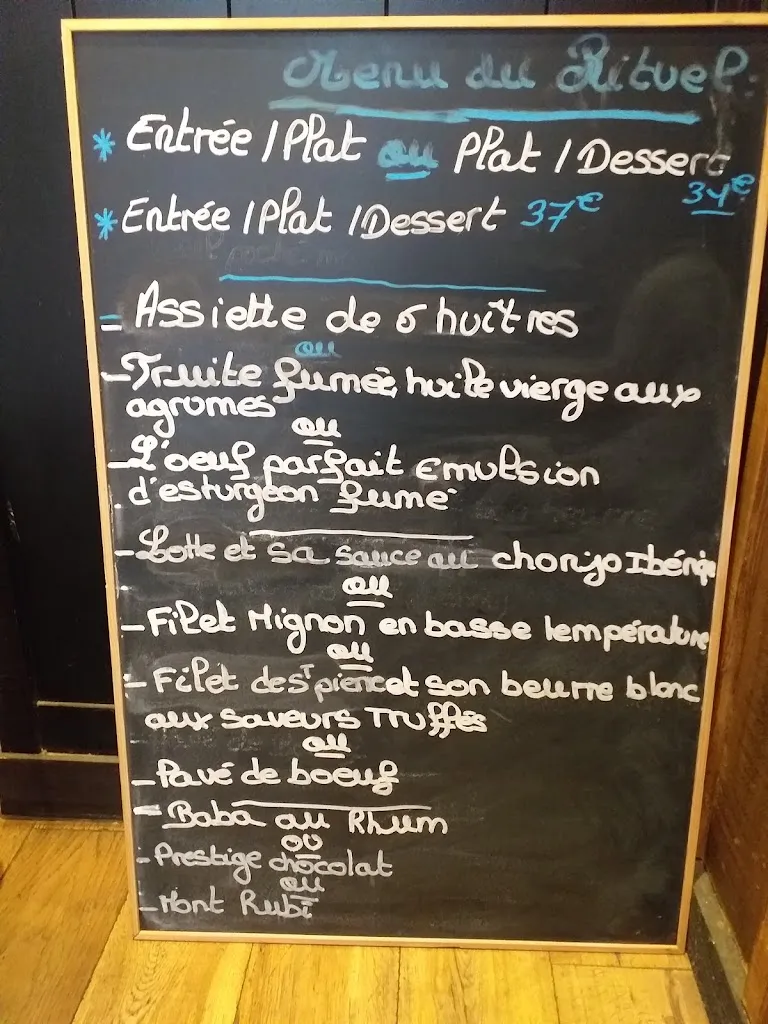 Menu du Rituel
* Entrée / Plat ou Plat / Dessert
34€
* Entrée / Plat / Dessert 37€
- Assiette de 6 huîtres
ou
- Truite fumée, huile vierge aux
agrumes
ou
- L'oeuf parfait Emulsion
d'esturgeon fumé
- Lotte et sa sauce au chorizo Ibériq
ou
- Filet Mignon en basse température
ou
- Filet de St pierre et son beurre blanc
aux saveurs Truffés
ou
- Pavé de boeuf
- Baba au Rhum
ou
- Prestige chocolat
ou
- Mont Rubi